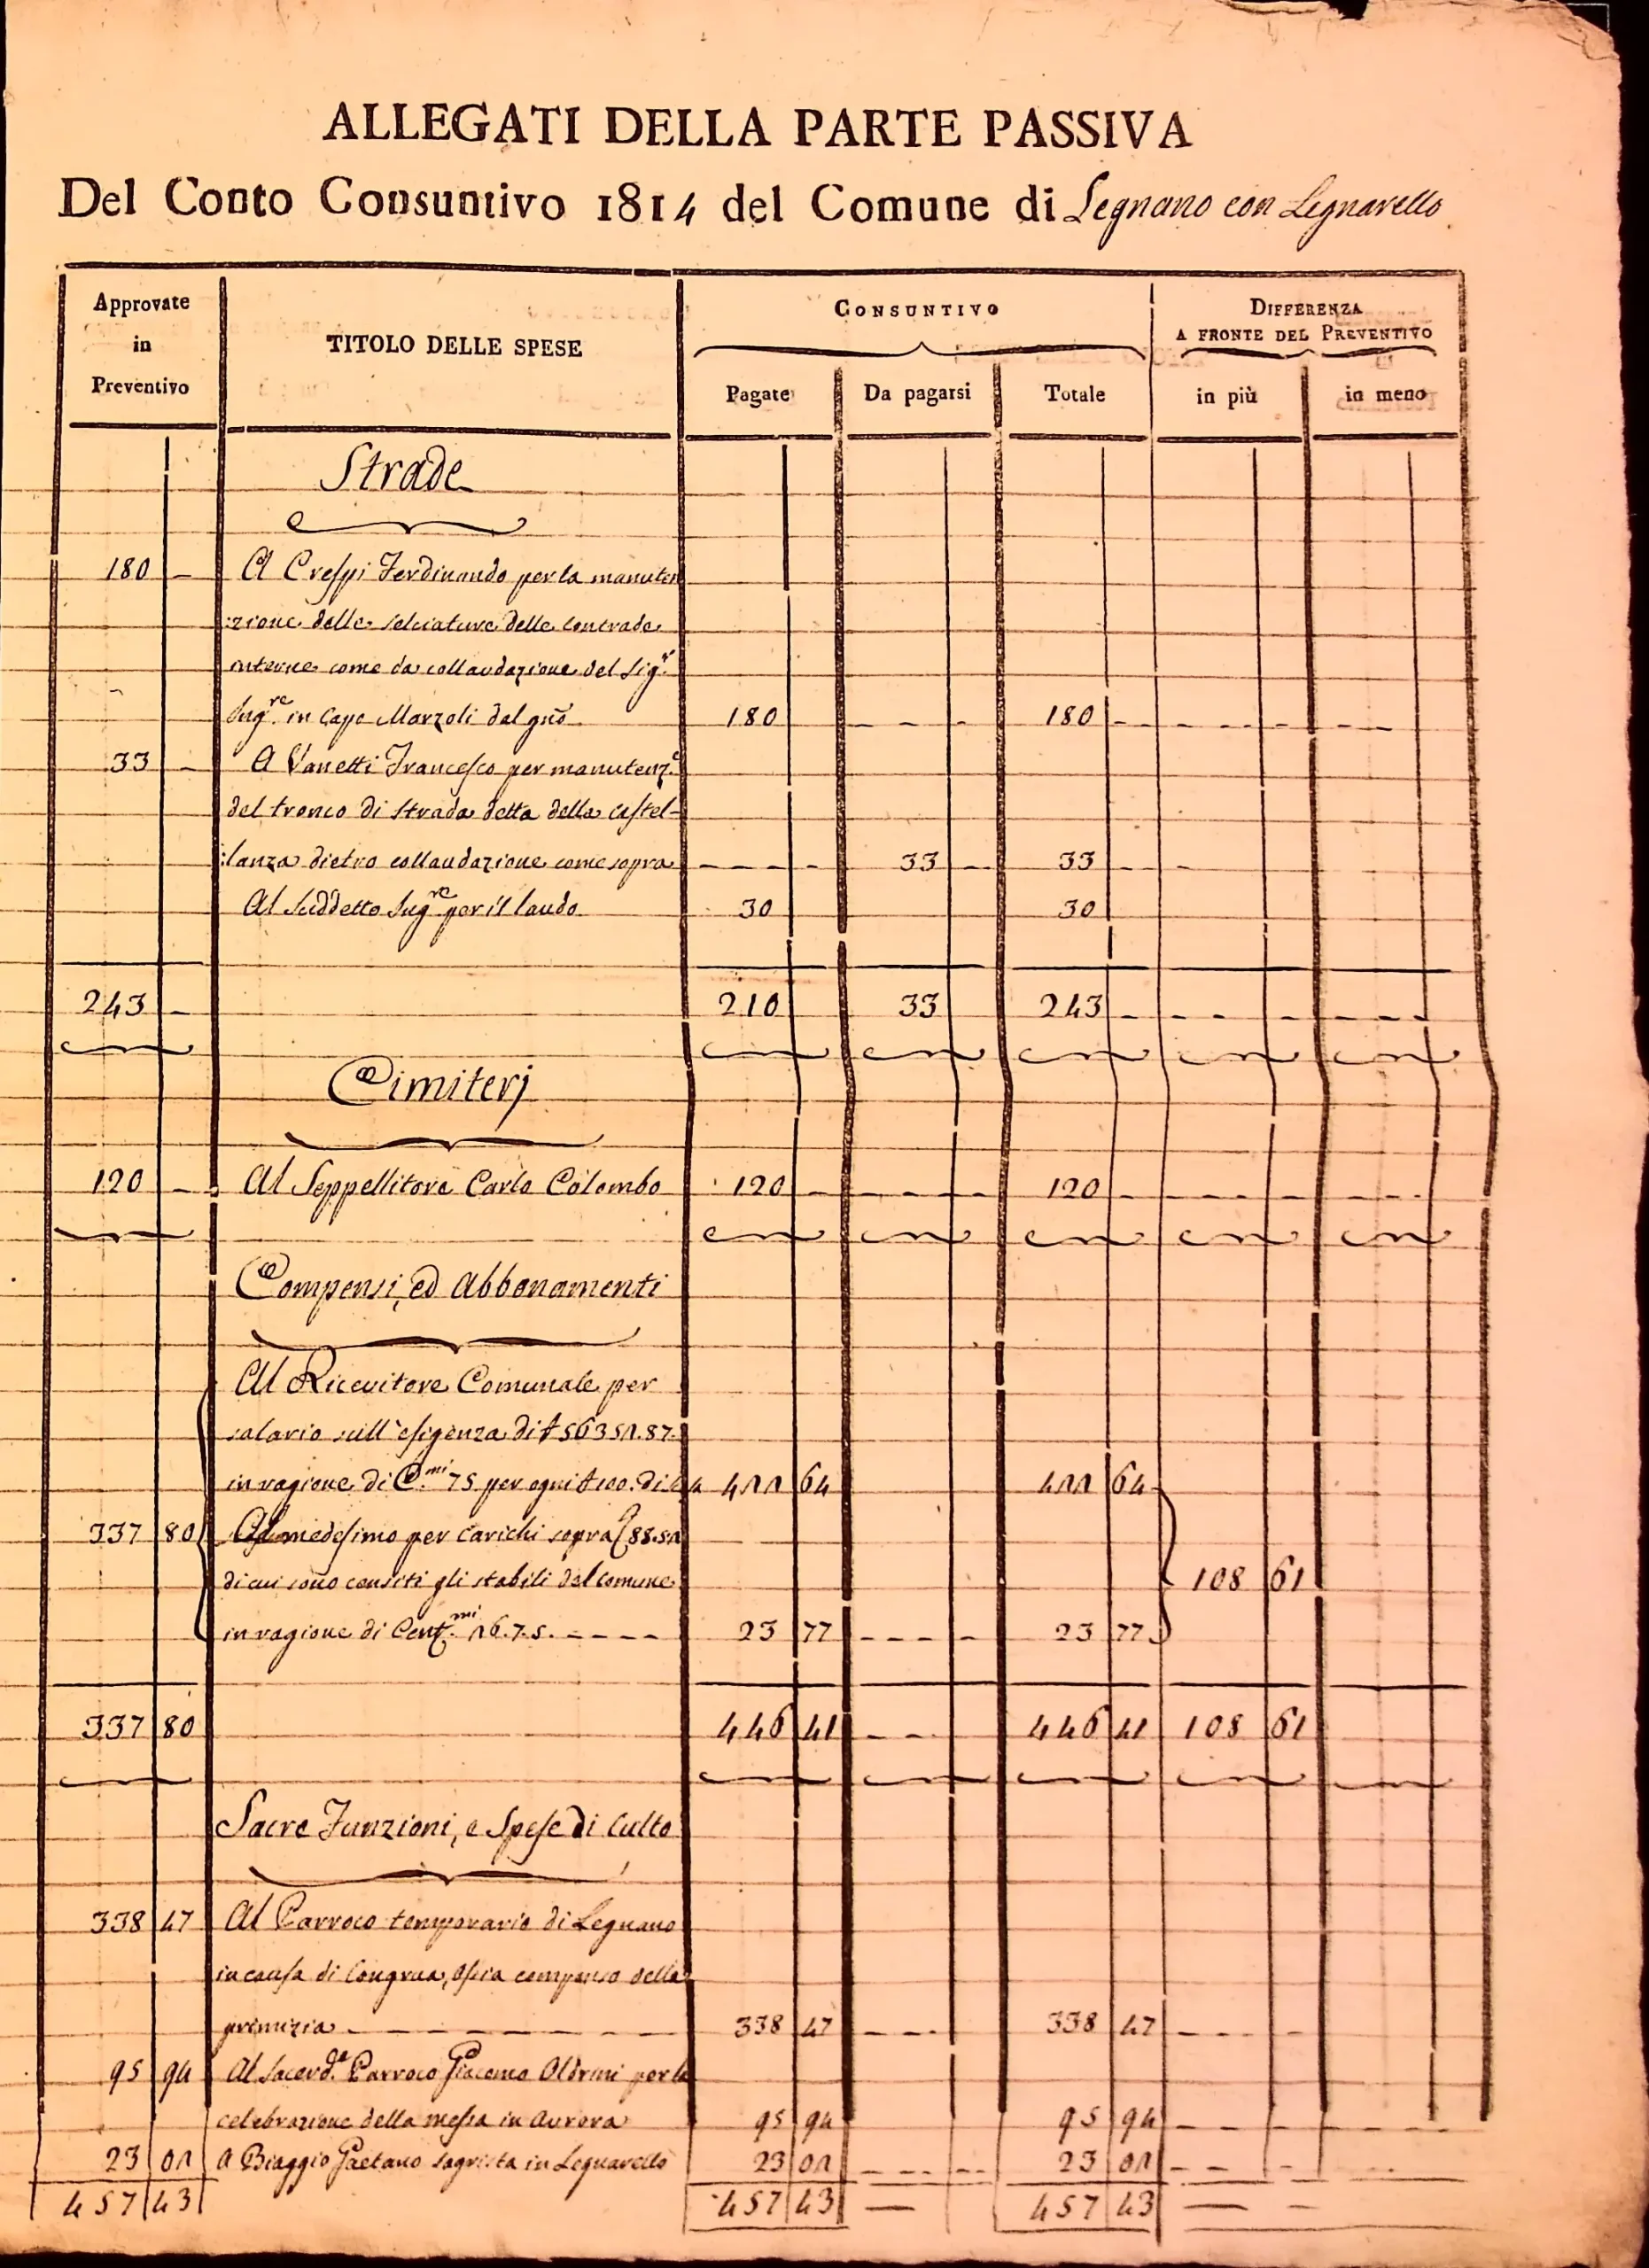 ALLEGATI DELLA PARTE PASSIVA
Del Conto Consuntivo 1814 del Comune di Legnano con Legnarello
Approvate in Preventivo
TITOLO DELLE SPESE
CONSUNTIVO
DIFFERENZA
A FRONTE DEL PREVENTIVO
Pagate Da pagarsi Totale in più in meno
Strade
180 — A Crespi Ferdinando per la manuten
:zione delle selciature delle contrade
interne come da collaudazione del Sig.r
Ing.re in Capo Marzoli dal 180 - - - 180 - - - - - - -
33 — A Vanetti Francesco per manutenz.e
del tronco di strada detta della Castel-
:lanza dietro collaudazione come sopra - - - - 33 - 33 - - -
Al suddetto Ing.re per il laudo 30 30
243 — 210 33 243 - - - - - - - -
Cimiterj
120 — Al Seppellitore Carlo Colombo 120 - - - - - 120 - - - - - - - -
Compensi, ed Abbonamenti
Al Ricevitore Comunale per
salario sull'esigenza di £ 56351.87.
in ragione di C.mi 75 per ogni £ 100. di 411 64 411 64
337 80 Al medesimo per carichi sopra 88.51
di cui sono censiti gli stabili del Comune 108 61
in ragione di Cent.mi 16.7.5. - - - - 23 77 - - - - 23 77
337 80 446 41 - - - 446 41 108 61
Sacre Funzioni, e Spese di Culto
338 47 Al Parroco temporario di Legnano
in causa di Congrua, ossia compenso della
primizia - - - - - - - - 338 47 - - - 338 47 - - - -
95 94 Al Sacerd.e Parroco Giacomo Oldrini per la
celebrazione della messa in Aurora 95 94 95 94 - - - - - - - -
23 01 A Biaggio Gaetano sagrista in Legnarello 23 01 - - - - - 23 01 - - - - -
457 43 457 43 — 457 43 — -